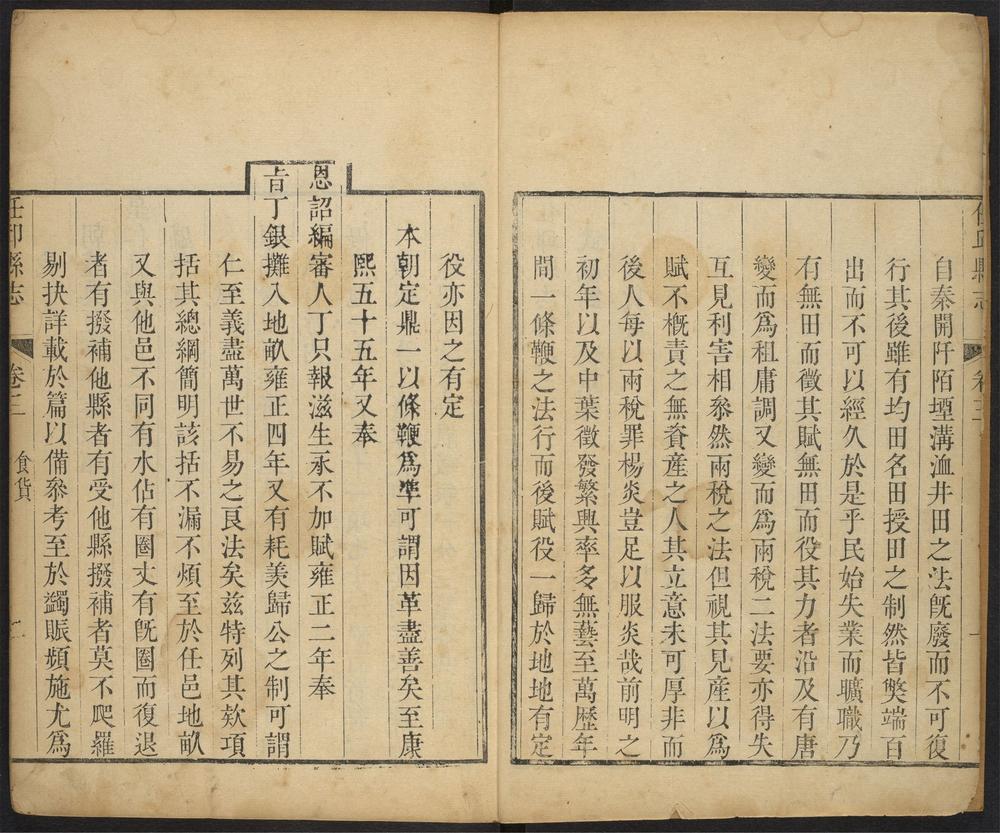 任邱縣志
卷三
一
自秦開阡陌堙溝洫井田之法旣廢而不可復
行其後雖有均田名田授田之制然皆獘端百
出而不可以經久於是乎民始失業而曠職乃
有無田而徵其賦無田而役其力者沿及有唐
變而爲租庸調又變而爲兩稅二法要亦得失
互見利害相叅然兩稅之法但視其見產以爲
賦不槪責之無資産之人其立意未可厚非而
後人每以兩稅罪楊炎豈足以服炎哉前明之
初年以及中葉徵發繁興率多無藝至萬歷年
間一條鞭之法行而後賦役一歸於地地有定
役亦因之有定
本朝定鼎一以條鞭爲準可謂因革盡善矣至康
熙五十五年又奉
恩詔編審人丁只報滋生永不加賦雍正二年奉
旨丁銀攤入地畝雍正四年又有耗羨歸公之制可謂
仁至義盡萬世不易之良法矣兹特列其欵項
括其總綱簡明該括不漏不煩至於任邑地畝
又與他邑不同有水佔有圈丈有旣圈而復退
者有撥補他縣者有受他縣撥補者莫不爬羅
剔抉詳載於篇以備叅考至於蠲賑頻施尤爲
任邱縣志
卷三
食貨
二